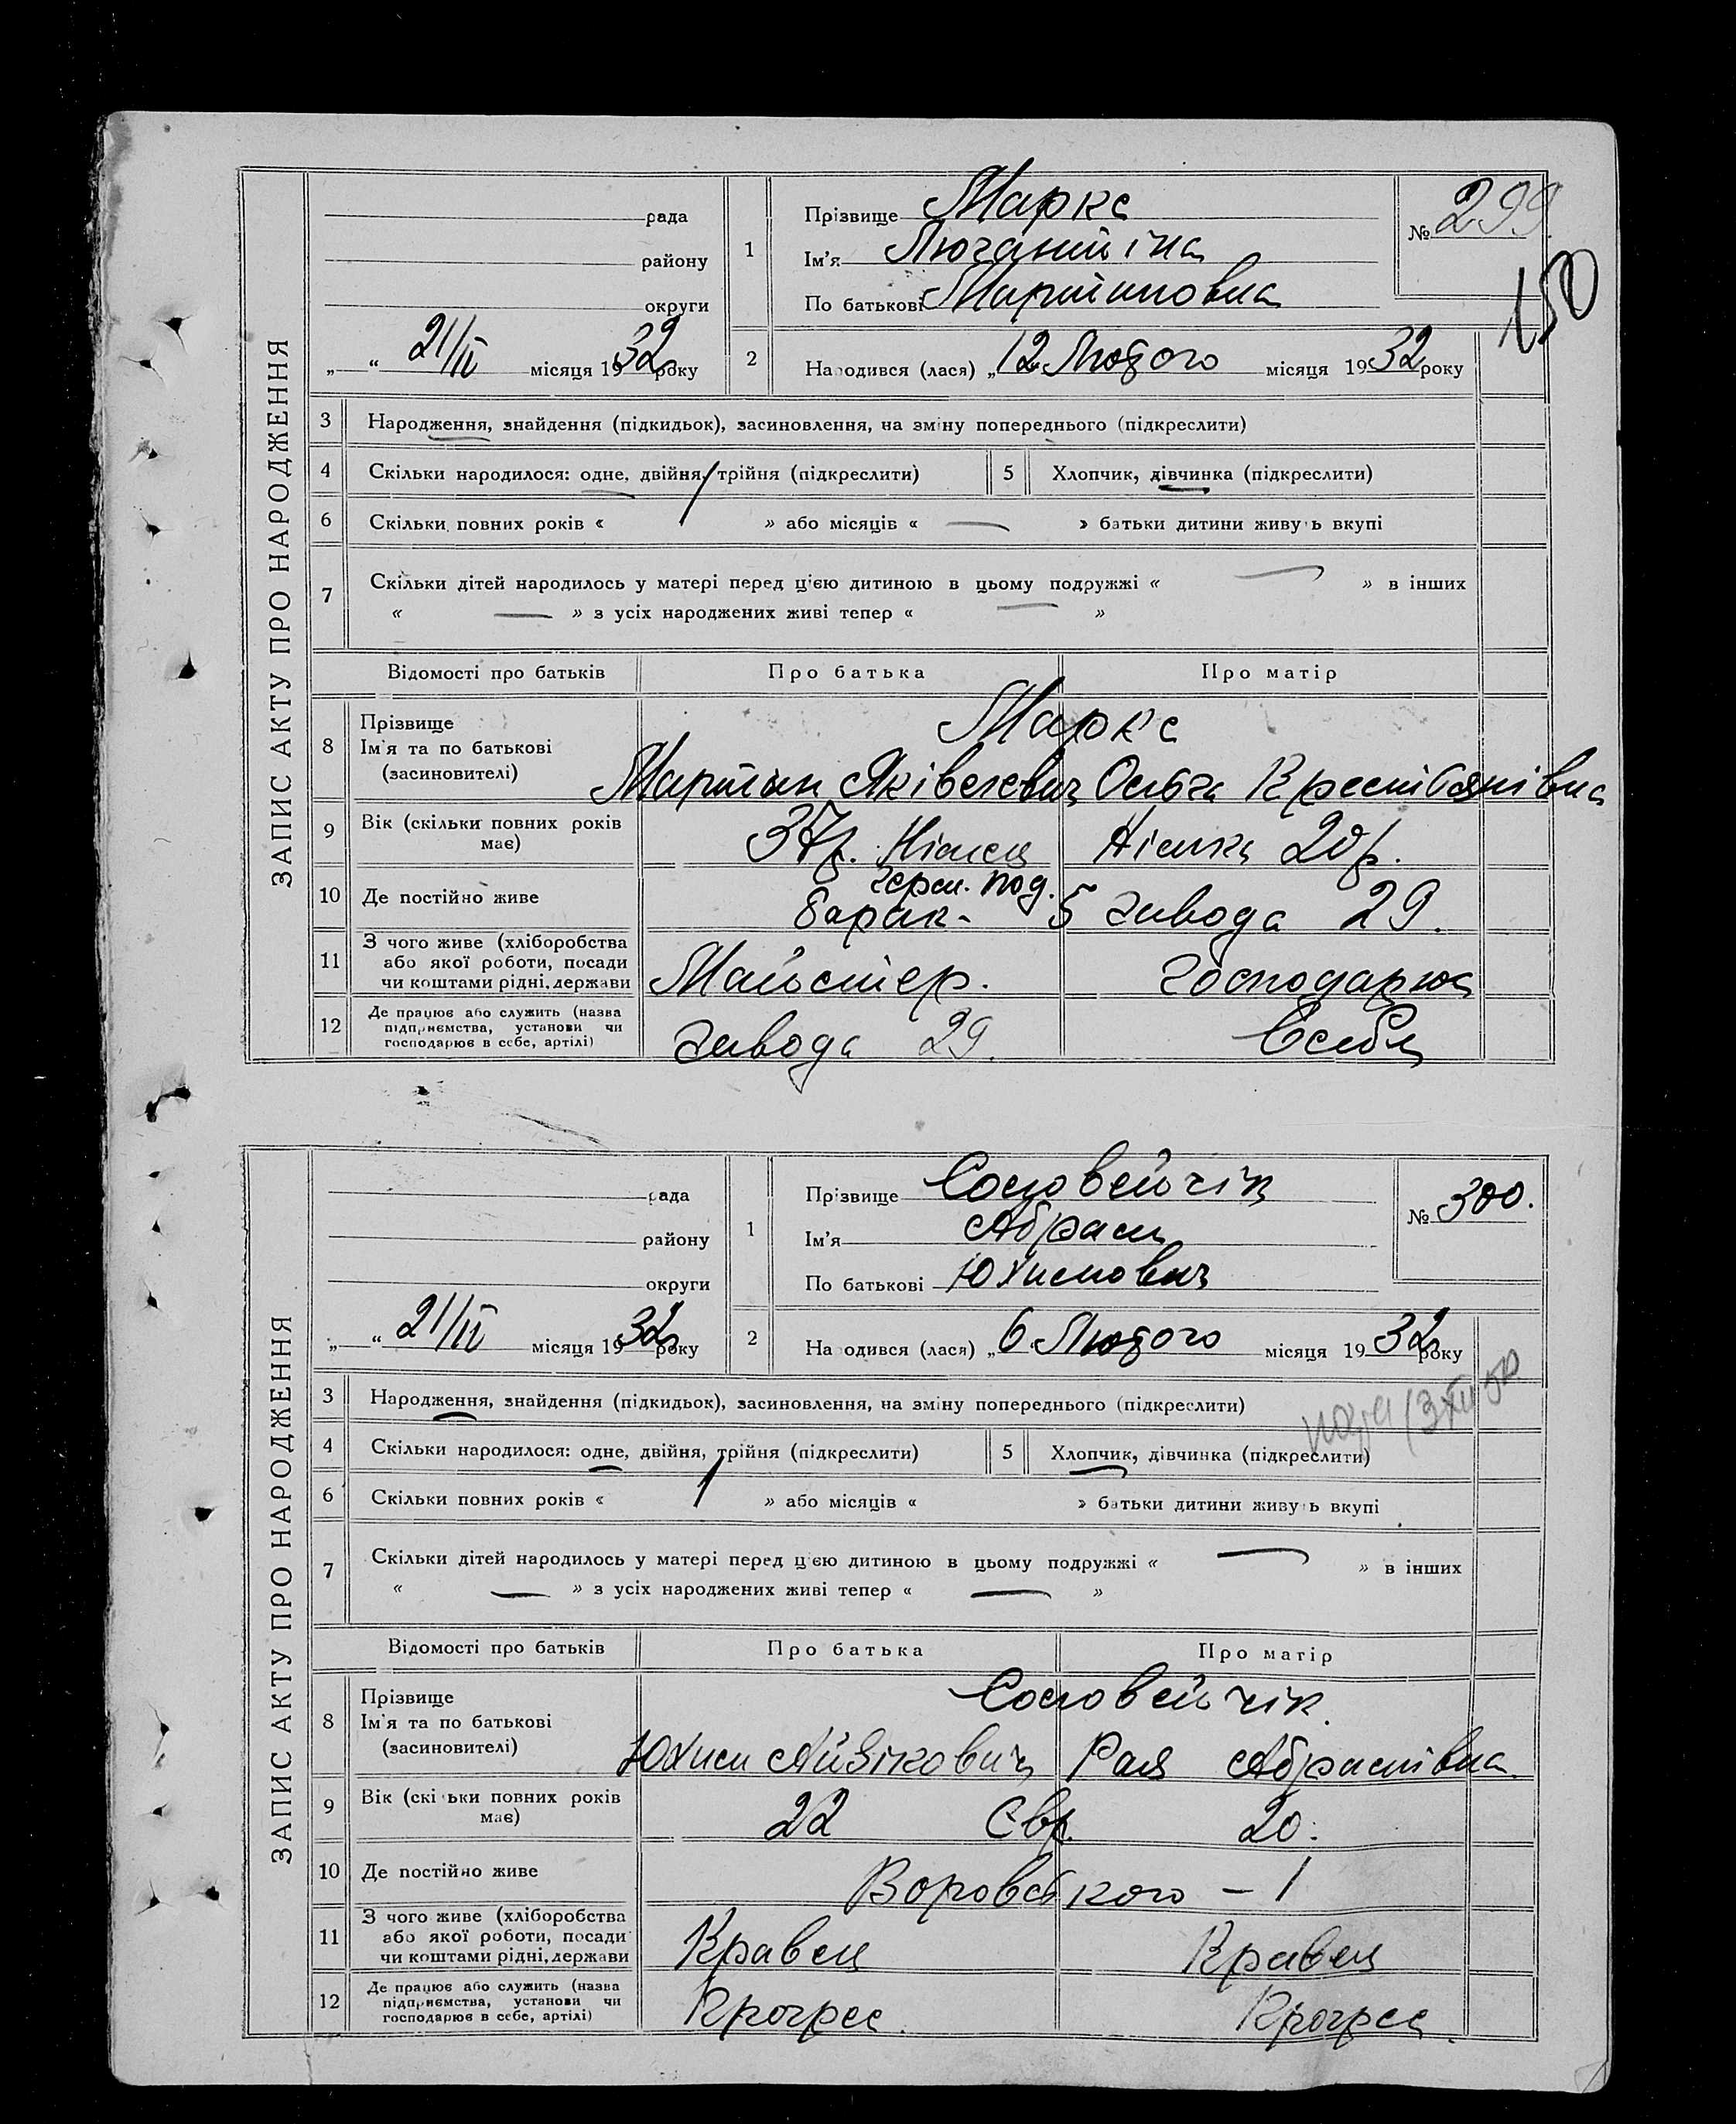 ЗАПИС АКТУ ПРО НАРОДЖЕННЯ
рада
району
округи
„ “ 21/II місяця 1932 року
1
Прізвище Маркс
Ім'я
По батькові Мартиновна
№ 299.
150
2
Народився (лася) „12 Лютого місяця 1932 року
3 Народження, знайдення (підкидьок), засиновлення, на зміну попереднього (підкреслити)
4 Скільки народилося: одне, двійня, трійня (підкреслити)
5 Хлопчик, дівчинка (підкреслити)
6 Скільки повних років « » або місяців « — » батьки дитини живуть вкупі
7 Скільки дітей народилось у матері перед цією дитиною в цьому подружжі « — » в інших
« — » з усіх народжених живі тепер « — »
Відомості про батьків Про батька Про матір
8 Прізвище
Ім'я та по батькові
(засиновителі)
Маркс
Мартин Яківелевич Ольга Крестьянівна
9 Вік (скільки повних років має)
37р. Німец Німка 20р.
герм. под.
10 Де постійно живе
барак - 5 завода 29.
11 З чого живе (хліборобства або якої роботи, посади чи коштами рідні, держави
Майстер. господарює
12 Де працює або служить (назва підприємства, установи чи господарює в себе, артілі)
завода 29. в себя
ЗАПИС АКТУ ПРО НАРОДЖЕННЯ
рада
району
округи
„ “ 21/II місяця 1932 року
1
Прізвище Соловейчік
Ім'я Абрам
По батькові Юхимович
№ 300.
2
Народився (лася) „6 Лютого місяця 1932 року
3 Народження, знайдення (підкидьок), засиновлення, на зміну попереднього (підкреслити)
4 Скільки народилося: одне, двійня, трійня (підкреслити)
5 Хлопчик, дівчинка (підкреслити)
6 Скільки повних років « » або місяців « » батьки дитини живуть вкупі
7 Скільки дітей народилось у матері перед цією дитиною в цьому подружжі « — » в інших
« — » з усіх народжених живі тепер « — »
Відомості про батьків Про батька Про матір
8 Прізвище
Ім'я та по батькові
(засиновителі)
Соловейчік.
Юхим Айзікович Рая Абрамівна.
9 Вік (скільки повних років має)
22 Євр. 20.
10 Де постійно живе
Воровського - 1
11 З чого живе (хліборобства або якої роботи, посади чи коштами рідні, держави
Кравец Кравец
12 Де працює або служить (назва підприємства, установи чи господарює в себе, артілі)
Прогрес. Прогрес.